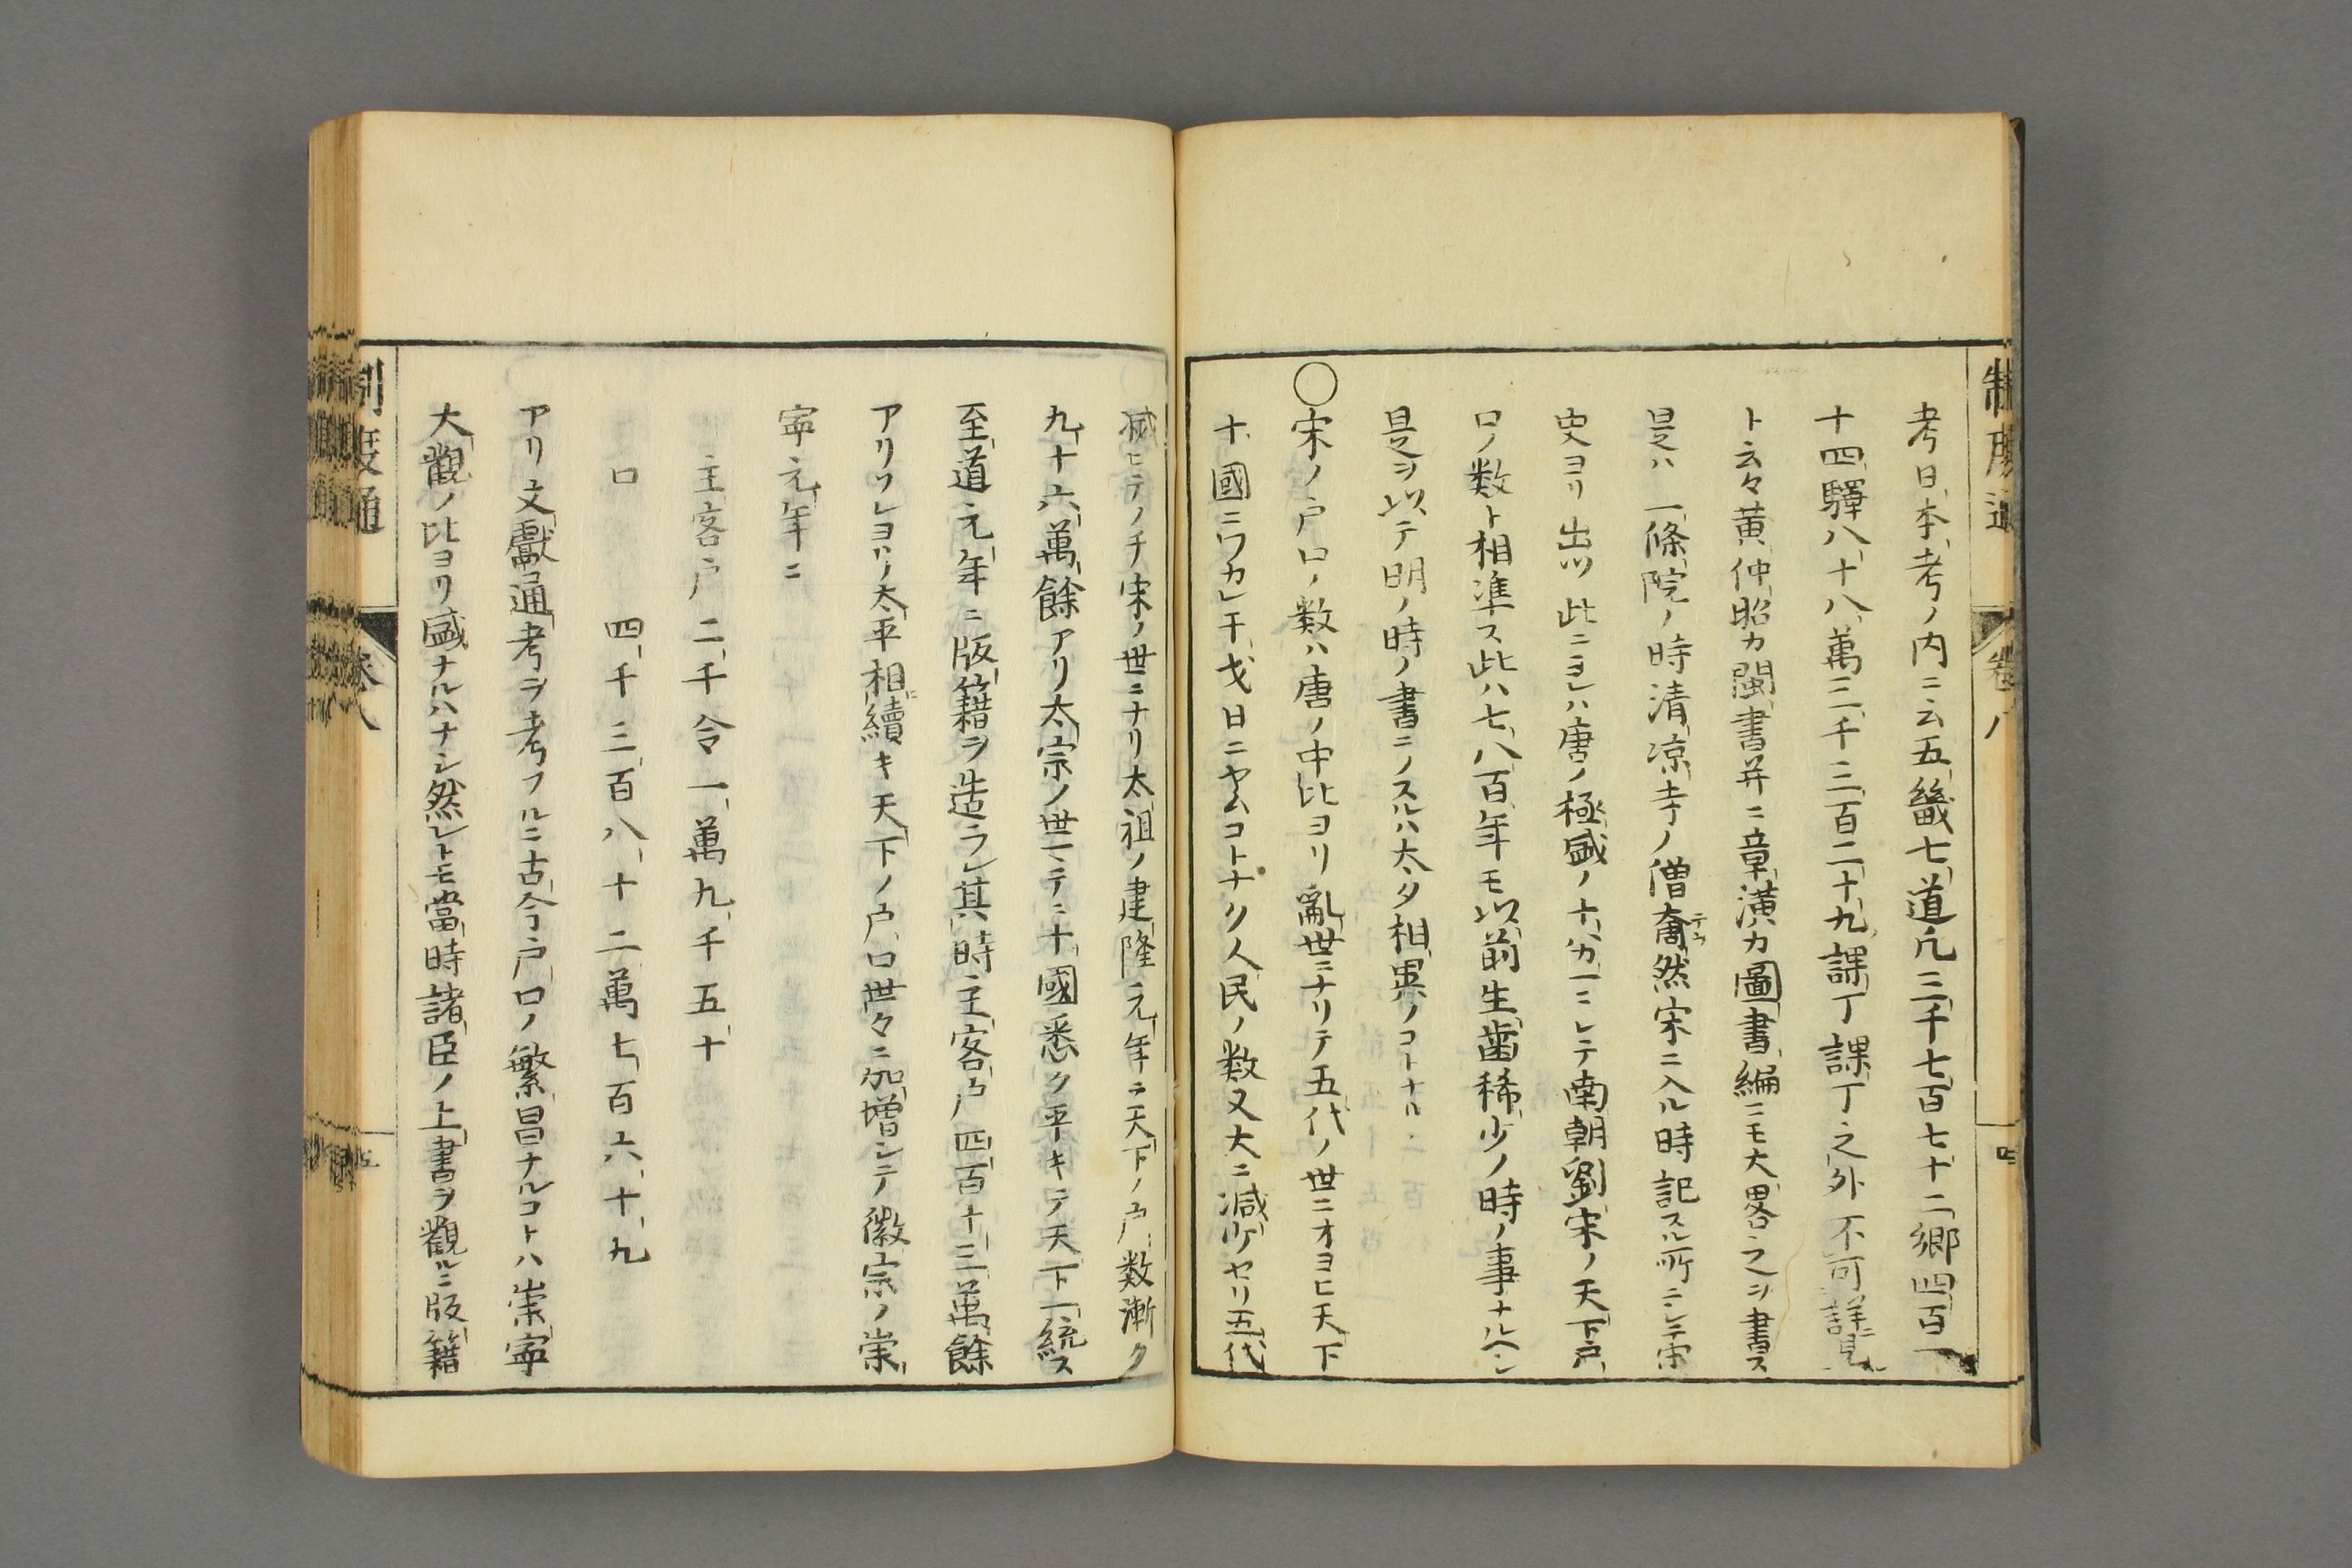 制度通 卷八 四
考日本考ノ内ニ云五畿七道凡三千七百七十二郷四百一
十四驛八十八萬三千三百二十九課丁課丁之外不可詳見
ト云々黄仲昭カ閩書并ニ章潢カ圖書編ニモ大畧之ヲ書ス
是ハ一條院ノ時清凉寺ノ僧奝然宋ニ入ル時記スル所ニシテ宋
史ヨリ出ツ此ニヨレハ唐ノ極盛ノ十分一ニシテ南朝劉宋ノ天下戸
口ノ数ト相準ス此ハ七八百年モ以前生齒稀少ノ時ノ事ナルヘシ
是ヲ以テ明ノ時ノ書ニノスルハ太タ相異ノコトナル
〇宋ノ戸口ノ数ハ唐ノ中比ヨリ亂世ニナリテ五代ノ世ニオヨヒ天下
十國ニワカレ干戈日ニヤムコトナク人民ノ数又大ニ減少セリ五代
滅ヒテノチ宋ノ世ニナリ太祖ノ建隆元年ニ天下ノ戸数漸ク
九十六萬餘アリ太宗ノ世マテニ十國悉ク平キテ天下一統ス
至道元年ニ版籍ヲ造ラレ其時主客戸四百十三萬餘
アリソレヨリ太平相續キ天下ノ戸口世々ニ加増シテ徽宗ノ崇
寧元年ニ
主客戸二千令一萬九千五十
口 四千三百八十二萬七百六十九
アリ文獻通考ヲ考フルニ古今戸口ノ繁昌ナルコトハ崇寧
大觀ノ比ヨリ盛ナルハナシ然レトモ當時諸臣ノ上書ヲ觀ルニ版籍
制度通 卷八 五